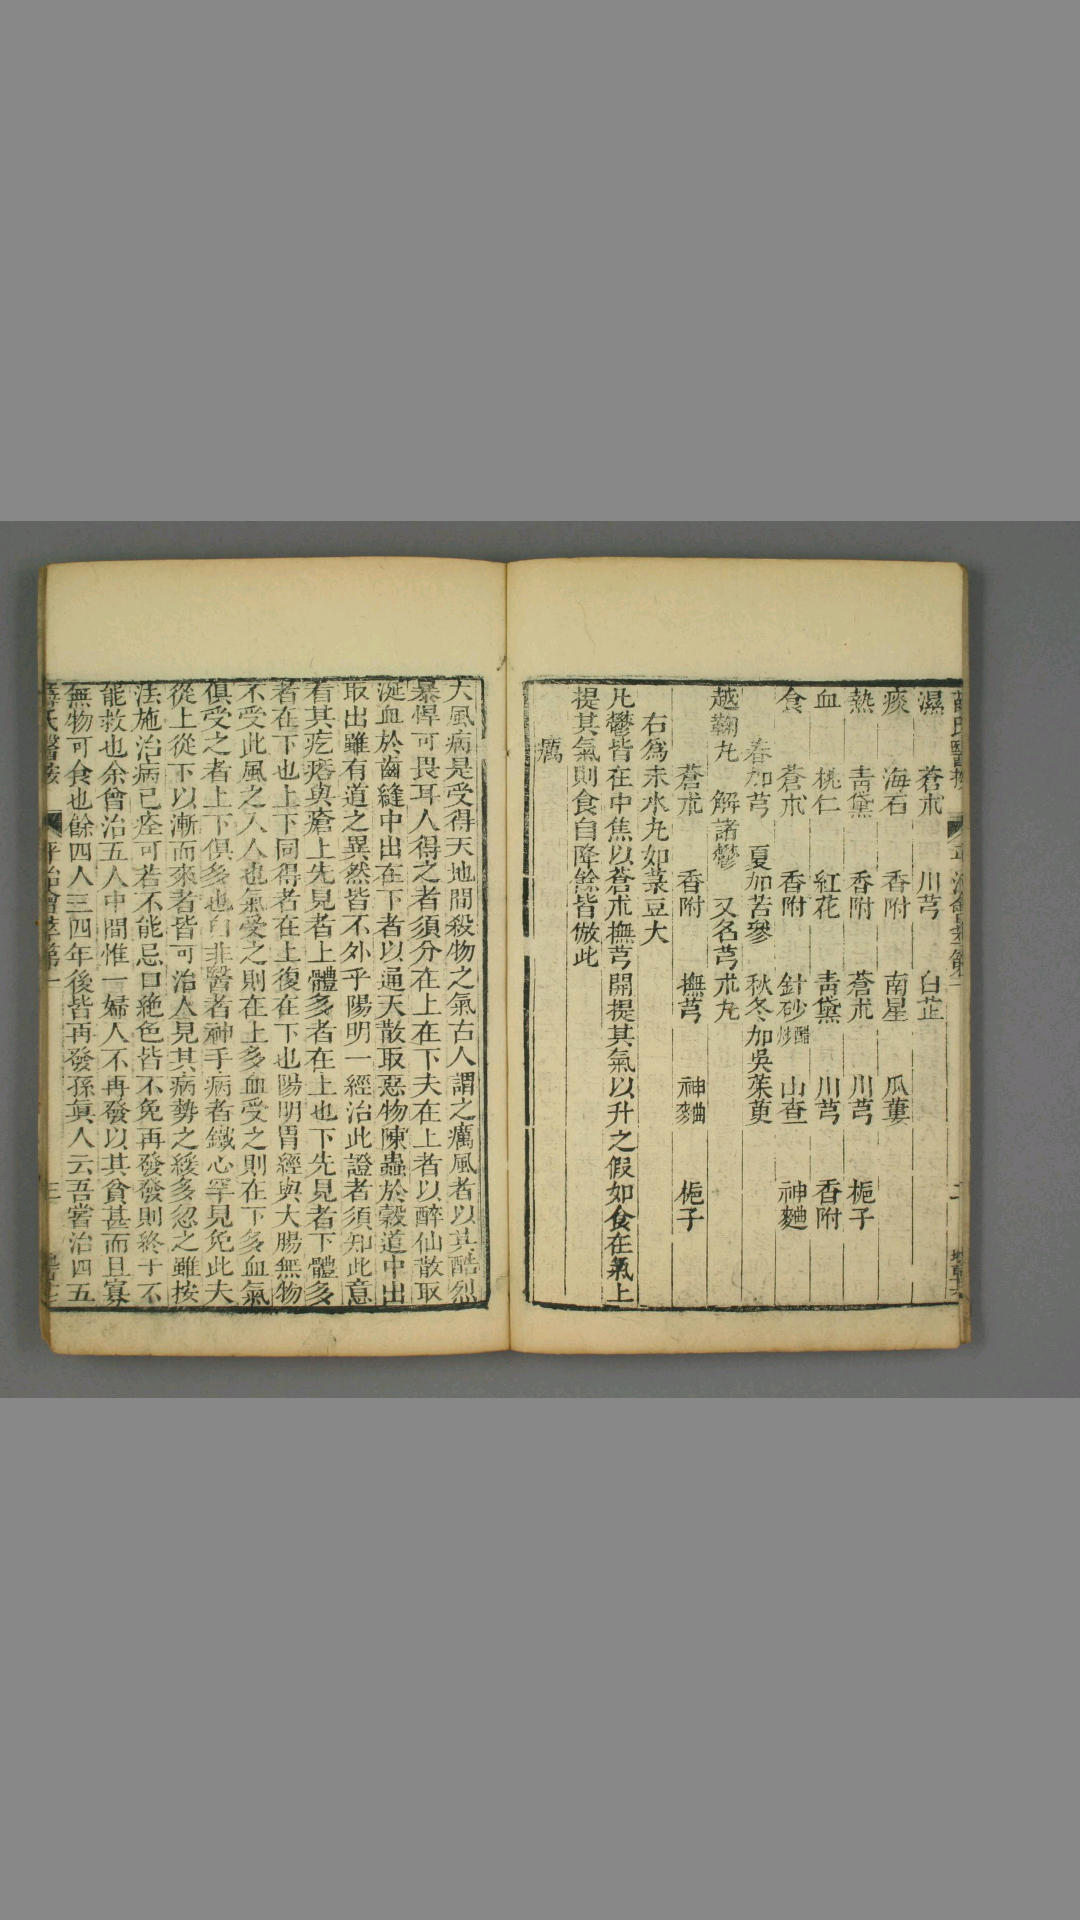 濕 蒼朮 川芎 白芷
痰 海石 香附 南星 瓜蔞
熱 靑黛 香附 蒼朮 川芎 梔子
血 桃仁 紅花 靑黛 川芎 香附
食 蒼朮 香附 針砂醋炒 山查 神麯
春加芎 夏加苦參 秋冬加吳茱萸
越鞠丸 解諸鬱 又名芎朮丸
蒼朮 香附 撫芎 神麯 梔子
右爲末水丸如菉豆大
凡鬱皆在中焦以蒼朮撫芎開提其氣以升之假如食在氣上
提其氣則食自降餘皆倣此
癘
大風病是受得天地間殺物之氣古人謂之癘風者以其酷烈
暴悍可畏耳人得之者須分在上在下夫在上者以醉仙散取
涎血於齒縫中出在下者以通天散取惡物陳蟲於穀道中出
取出雖有道之異然皆不外乎陽明一經治此證者須知此意
看其疙瘩與瘡上先見者上體多者在上也下先見者下體多
者在下也上下同得者在上復在下也陽明胃經與大腸無物
不受此風之入人也氣受之則在上多血受之則在下多血氣
俱受之者上下俱多也自非醫者神手病者鐵心罕見免此夫
從上從下以漸而來者皆可治人見其病勢之緩多忽之雖按
法施治病已痊可若不能忌口絶色皆不免再發發則終于不
能救也余曾治五人中間惟一婦人不再發以其貧甚而且寡
無物可食也餘四人三四年後皆再發孫眞人云吾嘗治四五
薛氏醫按 平治會萃第一 三